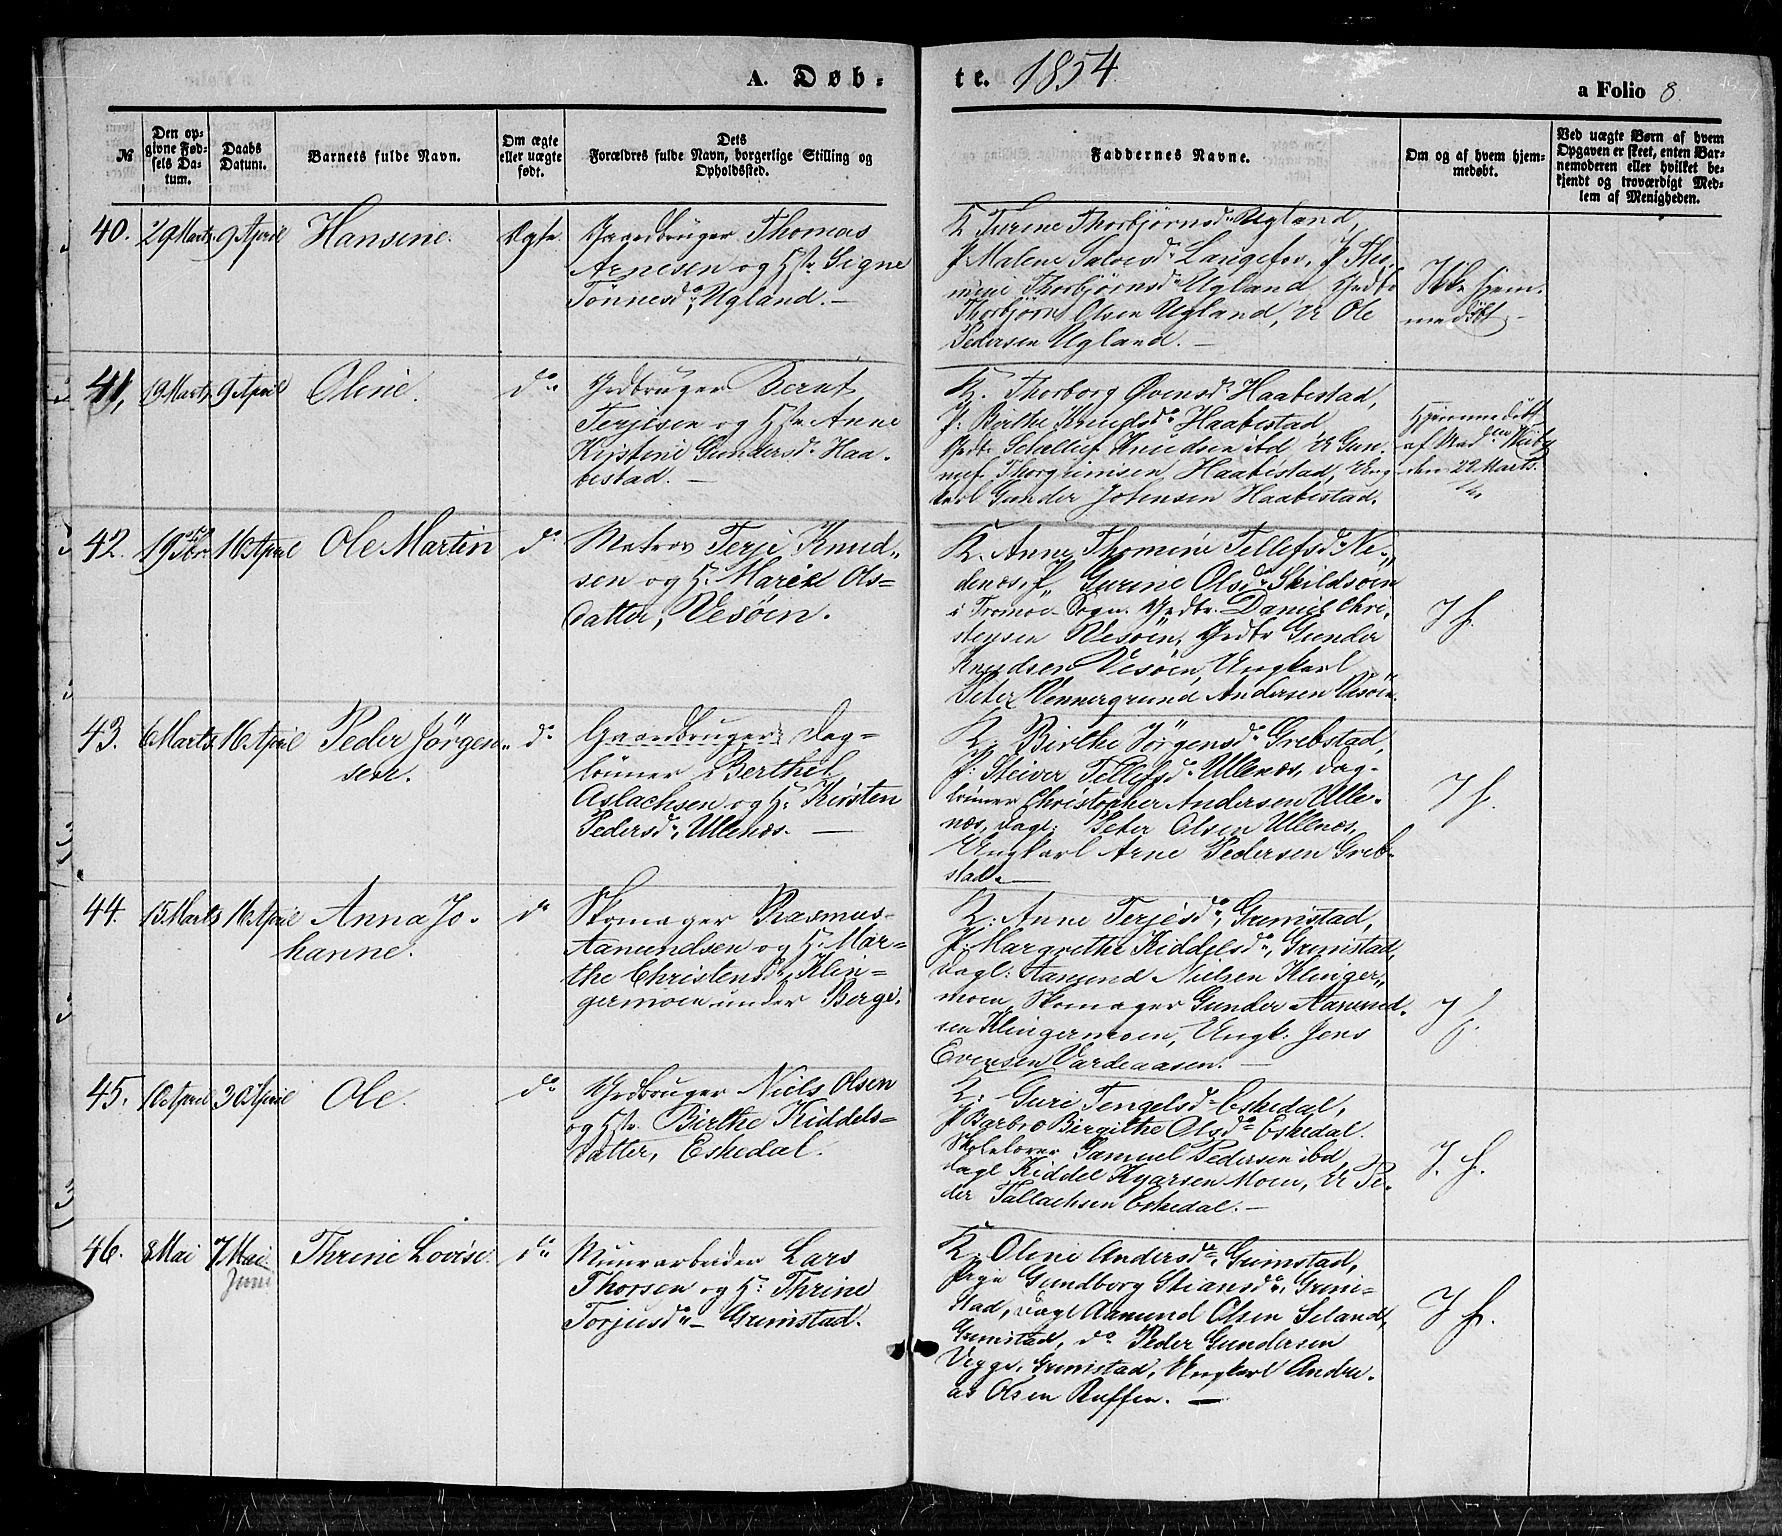 A. Døb-
te. 1854
a Folio 8.
№
Den op-
givne Fød-
sels Da-
tum.
Daabs
Datum.
Barnets fulde Navn.
Om ægte
eller uægte
født.
Dets
Forældres fulde Navn, borgerlige Stilling og
Opholdssted.
Faddernes Navne.
Om og af hvem hjem-
medøbt.
Ved uægte Børn af hvem
Opgaven er skeet, enten Bar-
nemoderen eller hvilket be-
kjendt og troværdigt Med-
lem af Menigheden.
40. 29 Marts 9 April Hansine. Ægte
Gaardbruger Thomas
Arnesen og Hstr Signe
Tønnesdr Ugland. —
K Turine Thorbjørnsdr Ugland,
P Malene Salvesdr Langefos, P Tho-
mine Thorbjørnsdr Ugland Grdbr
Thorbjørn Olsen Ugland, U Ole
Pedersen Ugland. —
Ikke hjem-
medöbt —
41, 19 Marts 9 April Oline. do
Grdbruger Bernt
Terjesen og Hstr Anne
Kirstine Gundersdr Haa-
bestad. —
K. Thorborg Øvensdr Haabestad,
P. Birthe Knudsdr Haabestad
Grdbr Knudsen ibd U Gun-
Thorgrimsen Haabestad, Ung
karl Gunder Johnsen Haabestad.
Hjemmedöbt
af Mad
den 22 Marts.
42. 19 16 April Ole Martin do
Matros Terje Knud-
sen og H. Maria Ols-
datter, Vesøen.
K. Anne Thomine Tellefsdr Ne-
denæs, P. Gurine Olsdr Skildsøen
i Tromøe Sogn. Grdbr. Daniel Chri-
stensen Vesøen, Grdbr Gunder
Knudsen Vesøen, Ungkarl
Peter Wennergrund Andersen Vesøen.
I h.
43. 6 Marts 16 April Peder Jörgen-
sen. do
Gaardbruger Dag-
lönner Berthel
Aslachsen og H. Kirsten
Pedersdr, Ullenæs. —
K. Birthe Jörgensdr Grebstad,
P: Tellefsdr Ullenæs, Dag-
lönner Christopher Andersen Ulle-
næs, Dagl: Peter Olsen Ullenæs,
Ungkarl Arne Pedersen Greb-
stad. —
I h.
44. 15 Marts 16 April Anna Jo-
hanne. do
Skomager Rasmus
Aamundsen og H. Mar-
the Christensdr, Klin-
germoen under Berge.
K: Anne Terjesdr, Grimstad,
P. Margrethe Kiddelsdr, Grimstad,
Dagl: Aamund Nielsen Klinger-
moen, Skomager Gunder Aamund-
sen Klingermoen, Ungk: Jens
Evensen Vardeaasen. —
I h.
45. 10 April 30 April Ole. do
Grdbruger Niels Olsen
og Hstr. Birthe Kiddels-
datter, Eskedal.
K: Guri Tengelsdr Eskedal,
P Barbro Birgithe Olsdr Eskedal.
Skolelærer Samuel Pedersen ibd
Dagl Kiddel Moen, U Pe-
der Tallachsen Eskedal. —
I. h.
46. 8 Mai 7 Mai Thrine Lovise. do
Juni
Muurarbeider Lars
Thorsen og H. Thrine
Torjusdr — Grimstad.
K. Oline Andersdr, Grimstad,
Pige Gundborg Stiansdr, Grim-
stad, Dagl Aamund Olsen Seland,
Grimstad, do Peder Gundersen
Vegge, Grimstad, Ungkarl Andre-
as Olsen Ruffen. —
I h.